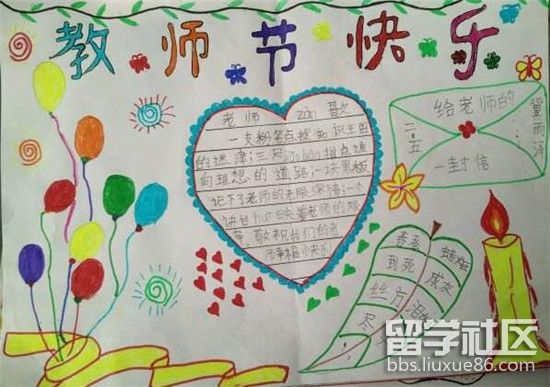 教师节快乐
老师 zàn 歌
一支粉笔点拨知识王国
的迷津;三尺jiào biān指点通
向理想的道路;一块黑板
记下了老师的无限深情;一个
讲台
着老师的
敬祝我们的老
师幸福快乐
给老师的
一封信
二·五
冀雨泽
春蚕
到死
丝方
尽
蜡炬
成灰
泪
留学社区
bbs.liuxue86.com